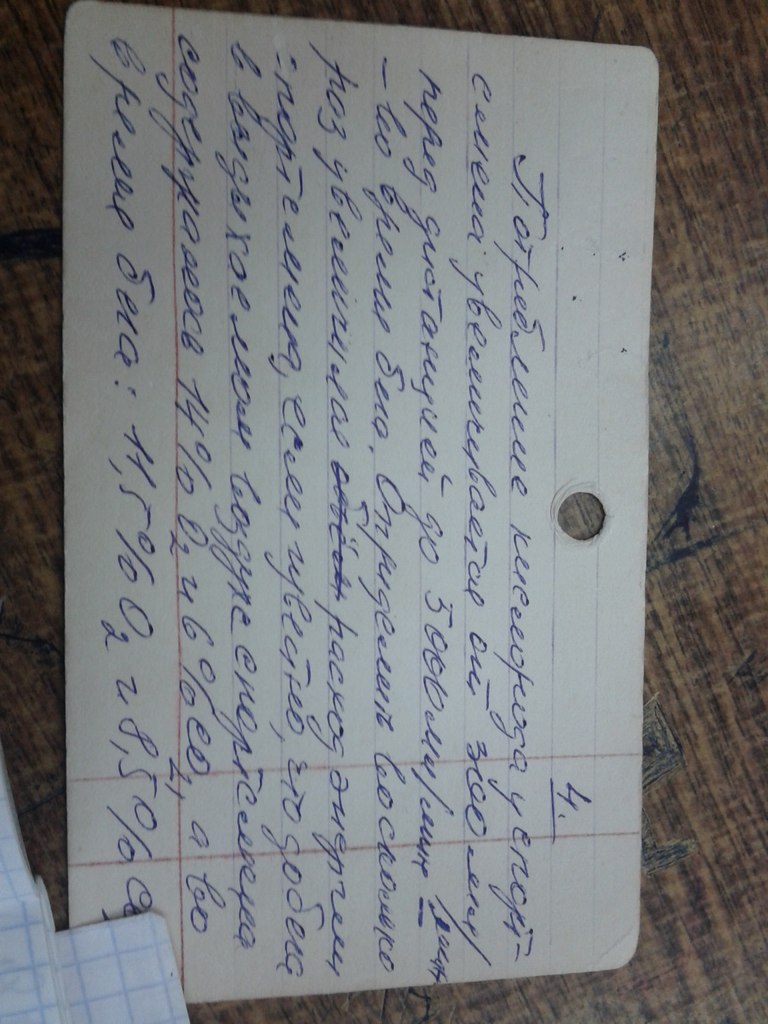 4.
Потребление кислорода у спорт-
смена увеличивается от 300 мл/мин
перед дистанцией до 5000 мл/мин
- во время бега. Определить во сколько
раз увеличился объём расход энергии
-портсмена, если известно, что до бега
в выдыхаемом воздухе спортсмена
содержалось 14% O₂ и 6% CO₂, а во
время бега: 11,5% O₂ и 8,5% CO